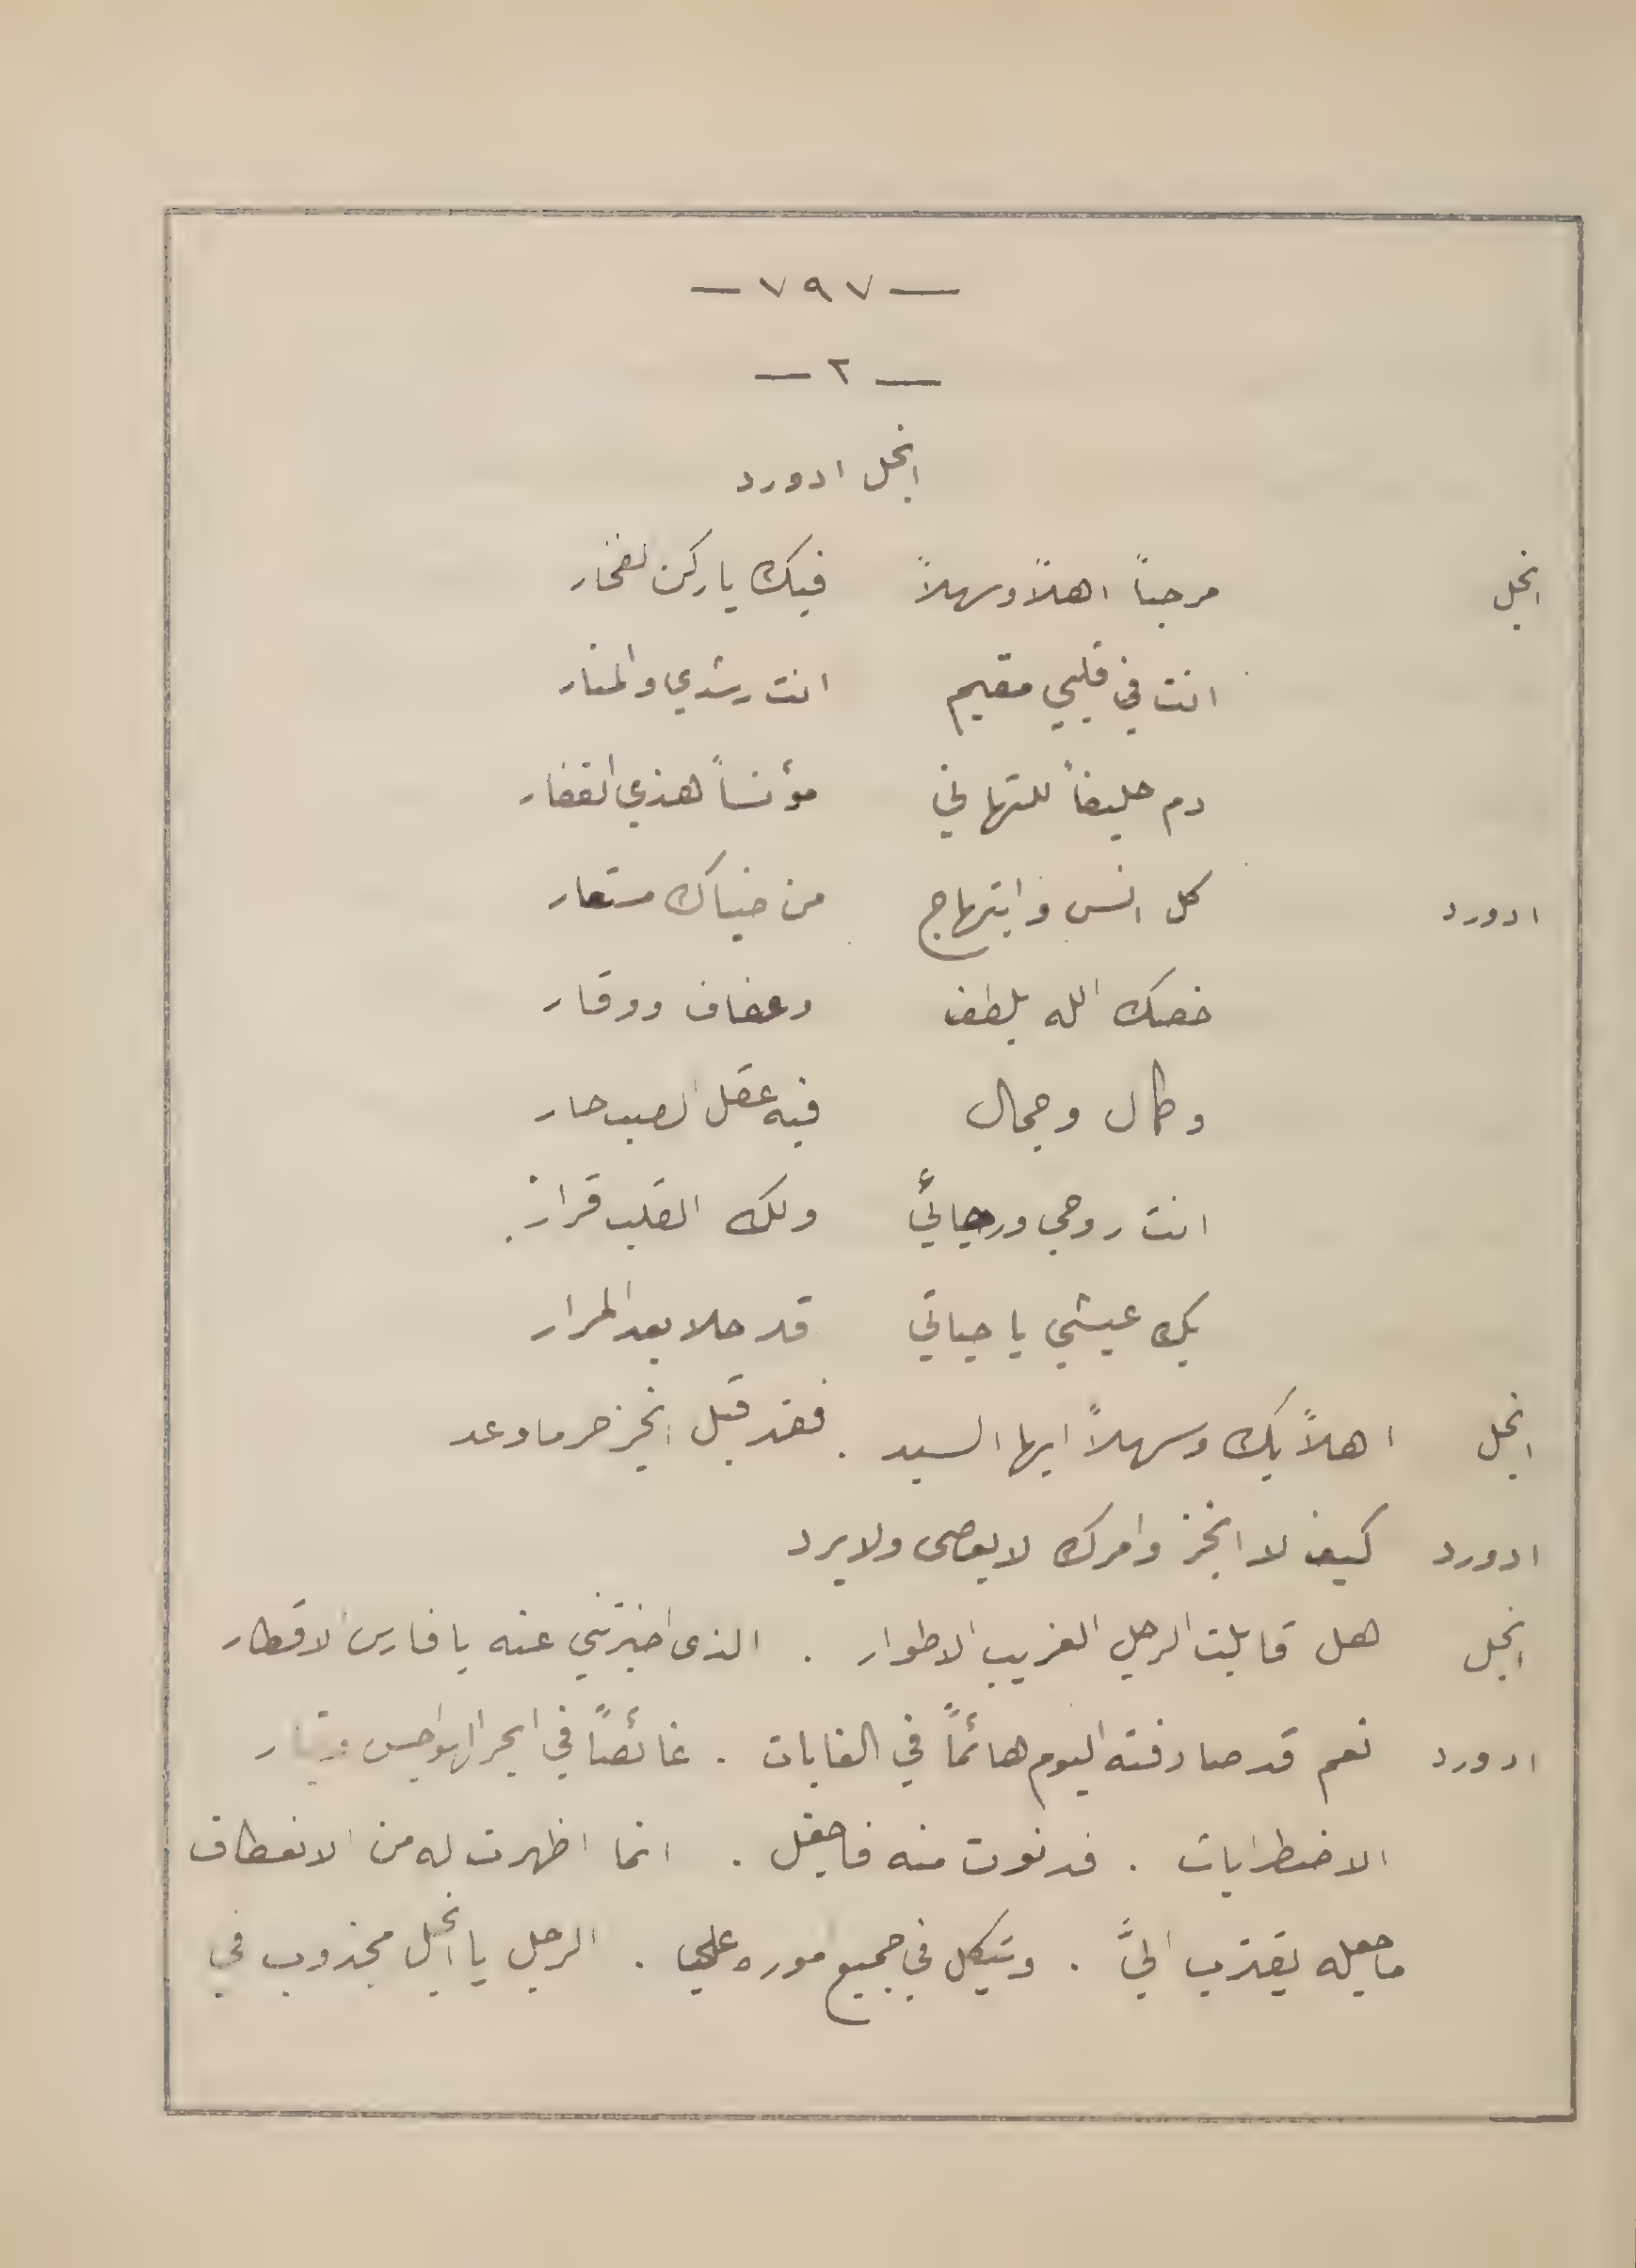 — ٧٩٧ —
— ٢ —
انجل ادورد
انجل مرحباً اهلاً وسهلاً فيك يا ركن الفخار
انت في قلبي مقيم انت رشدي والمنار
دم حليفاً للتهاني مؤنساً هذي القفار
ادورد كل انس وابتهاج من ضياك مستعار
خصك الله بلطف وعفاف ووقار
وكمال وجمال فيه عقل الصب حار
انت روحي ورجائي ولك القلب قرار
بك عيشي يا حياتي قد حلا بعد المرار
انجل اهلاً بك وسهلاً ايها السيد . فقد قيل انجز حر ما وعد
ادورد كيف لا انجز وامرك لا يعصى ولا يرد
انجل هل قابلت الرجل الغريب الاطوار . الذى اخبرتني عنه يا فارس الاقطار
ادورد نعم قد صادفته اليوم هائماً في الغابات . غائصاً في ابحر الهواجس
الاضطرابات . فدنوت منه فاجفل . انما اظهرت له من الانعطاف
ما جعله يقترب اليَّ . ويتكل في جميع اموره عليا . الرجل يا انجل مجذوب في